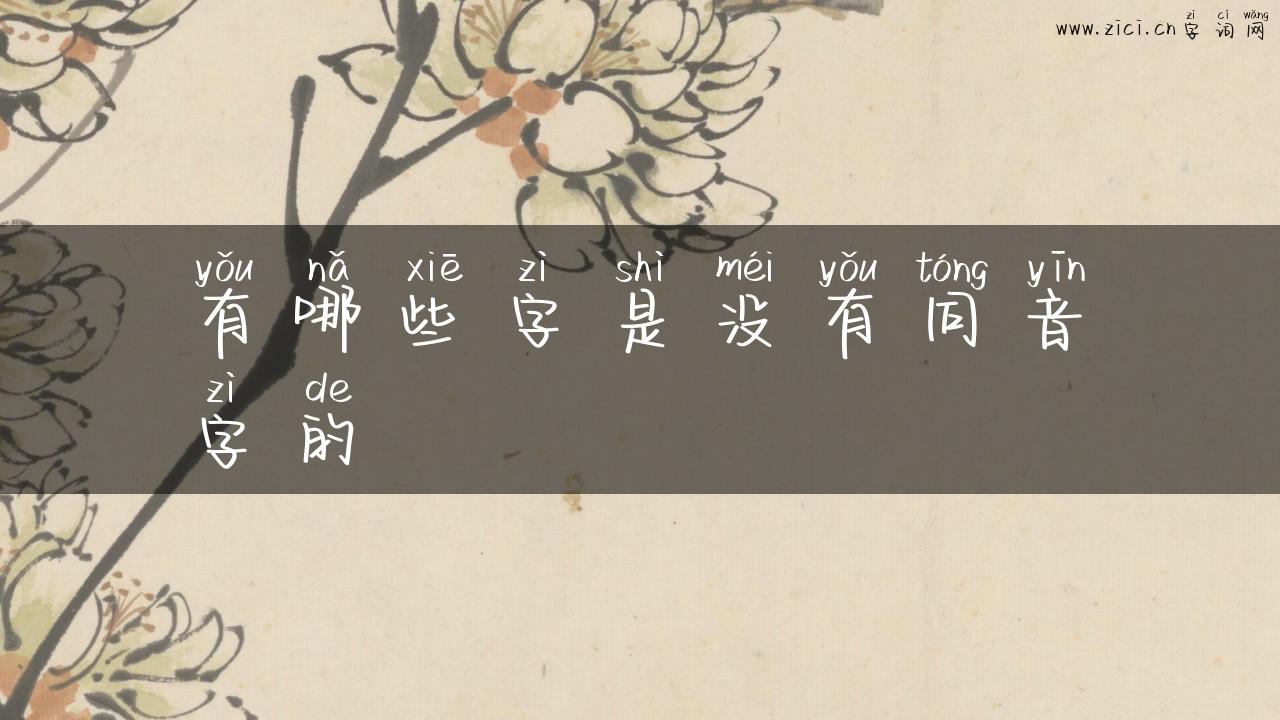 zì cí wǎng
www.zici.cn 字词网
yǒu nǎ xiē zì shì méi yǒu tóng yīn
有哪些字是没有同音
zì de
字的